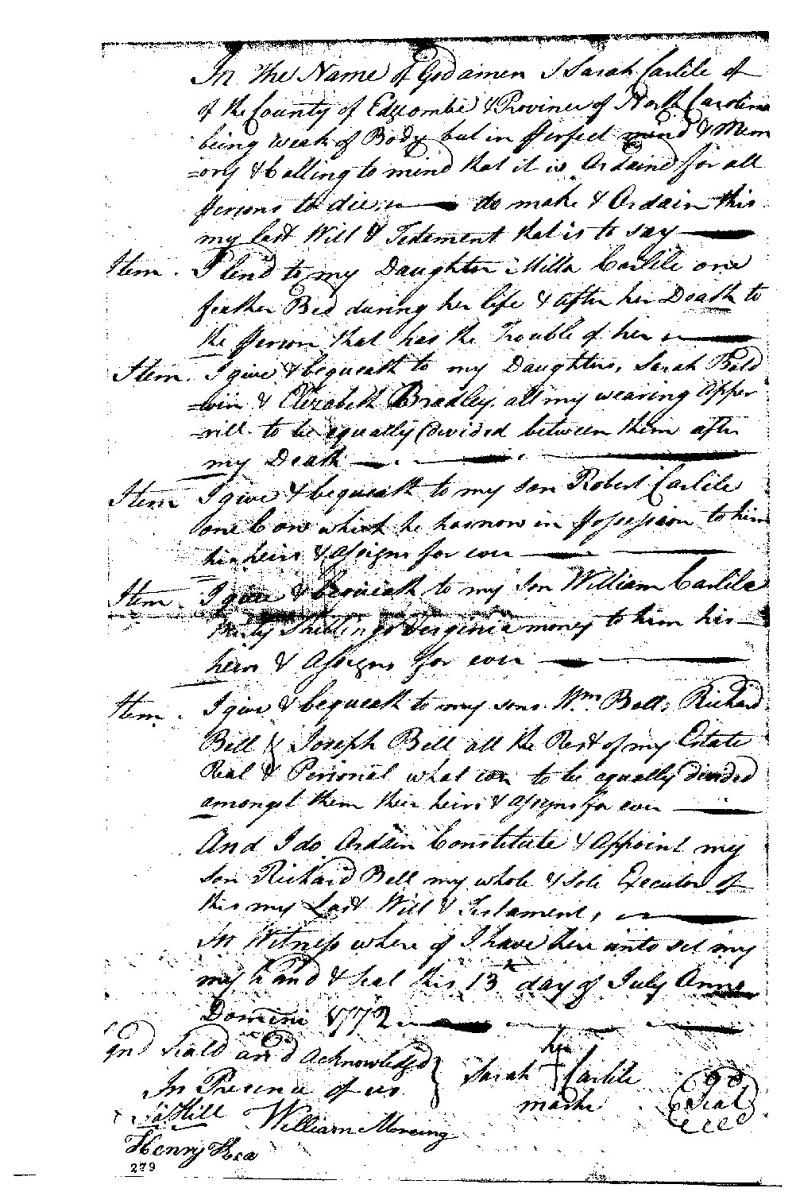 In the Name of God amen I Sarah Carlile of
of the County of Edgcombe & Province of North Carolina
being weak of Body but in perfect mind & Mem
=ory & Calling to mind that it is Ordained for all
persons to die, do make & Ordain this
my last Will & Testement that is to say
Item. I lend to my Daughter Milla Carlile one
feather Bed during her life & after her Death to
the person that has the Trouble of her
Item. I give & bequeath to my Daughters, Sarah Bald
=win & Elizabeth Bradley, all my wearing Apper
=rill to be equally divided between them after
my Death
Item I give & bequeath to my son Robert Carlile
one Cow which he has now in possession to him
his heirs & assigns for ever
Item. I give & bequeath to my Son William Carlile
Shillings Virginia money to him his
heirs & assigns for ever
Item. I give & bequeath to my sons Wm Bell, Richard
Bell & Joseph Bell all the Rest of my Estate
Real & Personal what ever to be equally divided
amongst them their heirs & assigns for ever
And I do Ordain Constitute & Appoint my
Son Richard Bell my whole & Sole Executor of
this my Last Will & Testament,
In Witness where of I have here unto set my
my hand & seal this 13th day of July Anno
Domini 1772
gnd Seald and Acknowledged
In Presence of us
her
Sarah + Carlile
mark
Seal
Hill William Moreing
Henry
279